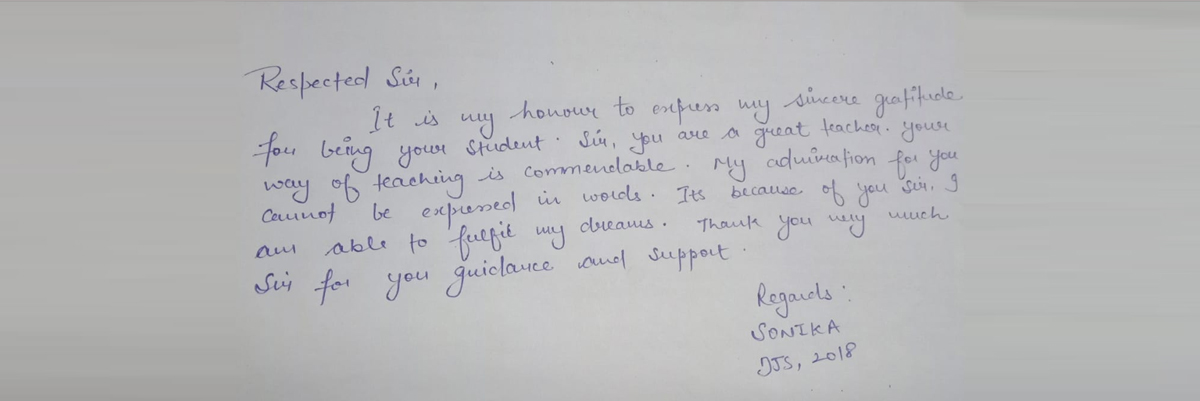 Respected Sir,
It is my honour to express my sincere gratitude
for being your student. Sir, you are a great teacher. Your
way of teaching is commendable. My admiration for you
cannot be expressed in words. Its because of you Sir. I
am able to fulfil my dreams. Thank you very much
Sir for you guidance and support.
Regards:
SONIKA
DJS, 2018